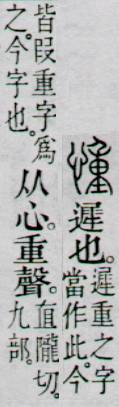 遲也。遲重之字當作此。今
皆叚重字爲之。今字也。从心。重聲。直隴切。九部。